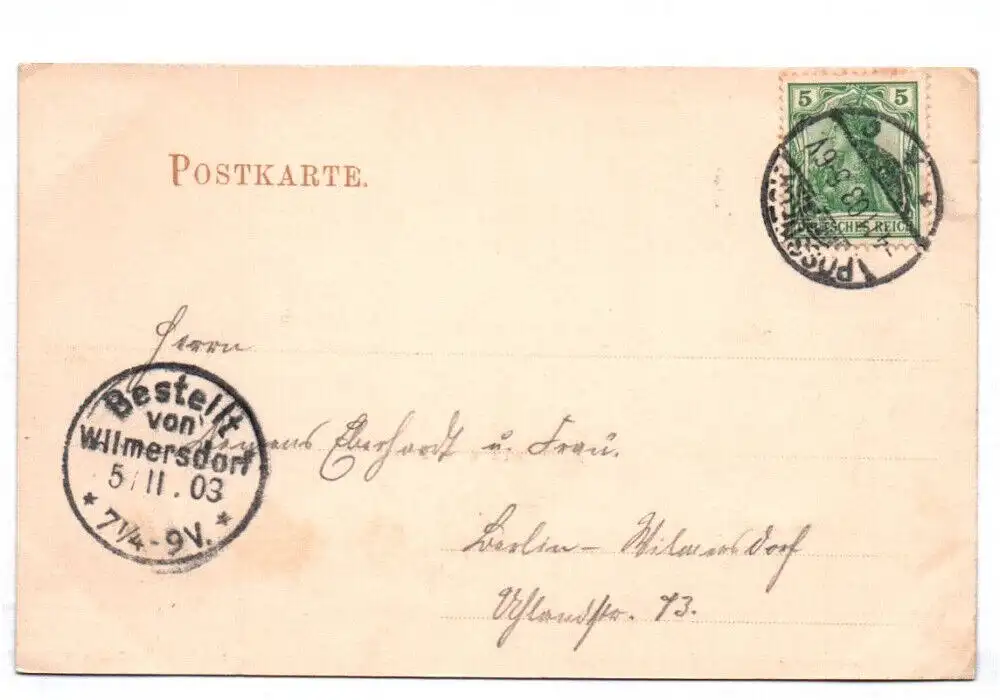 POSTKARTE.
5 5
DEUTSCHES REICH
PÖSSNECK
Herrn
Eberhardt u. Frau.
Berlin – Wilmersdorf
Uhlandstr. 73.
Bestellt
von
Wilmersdorf
5/11.03
* 7¼-9V. *